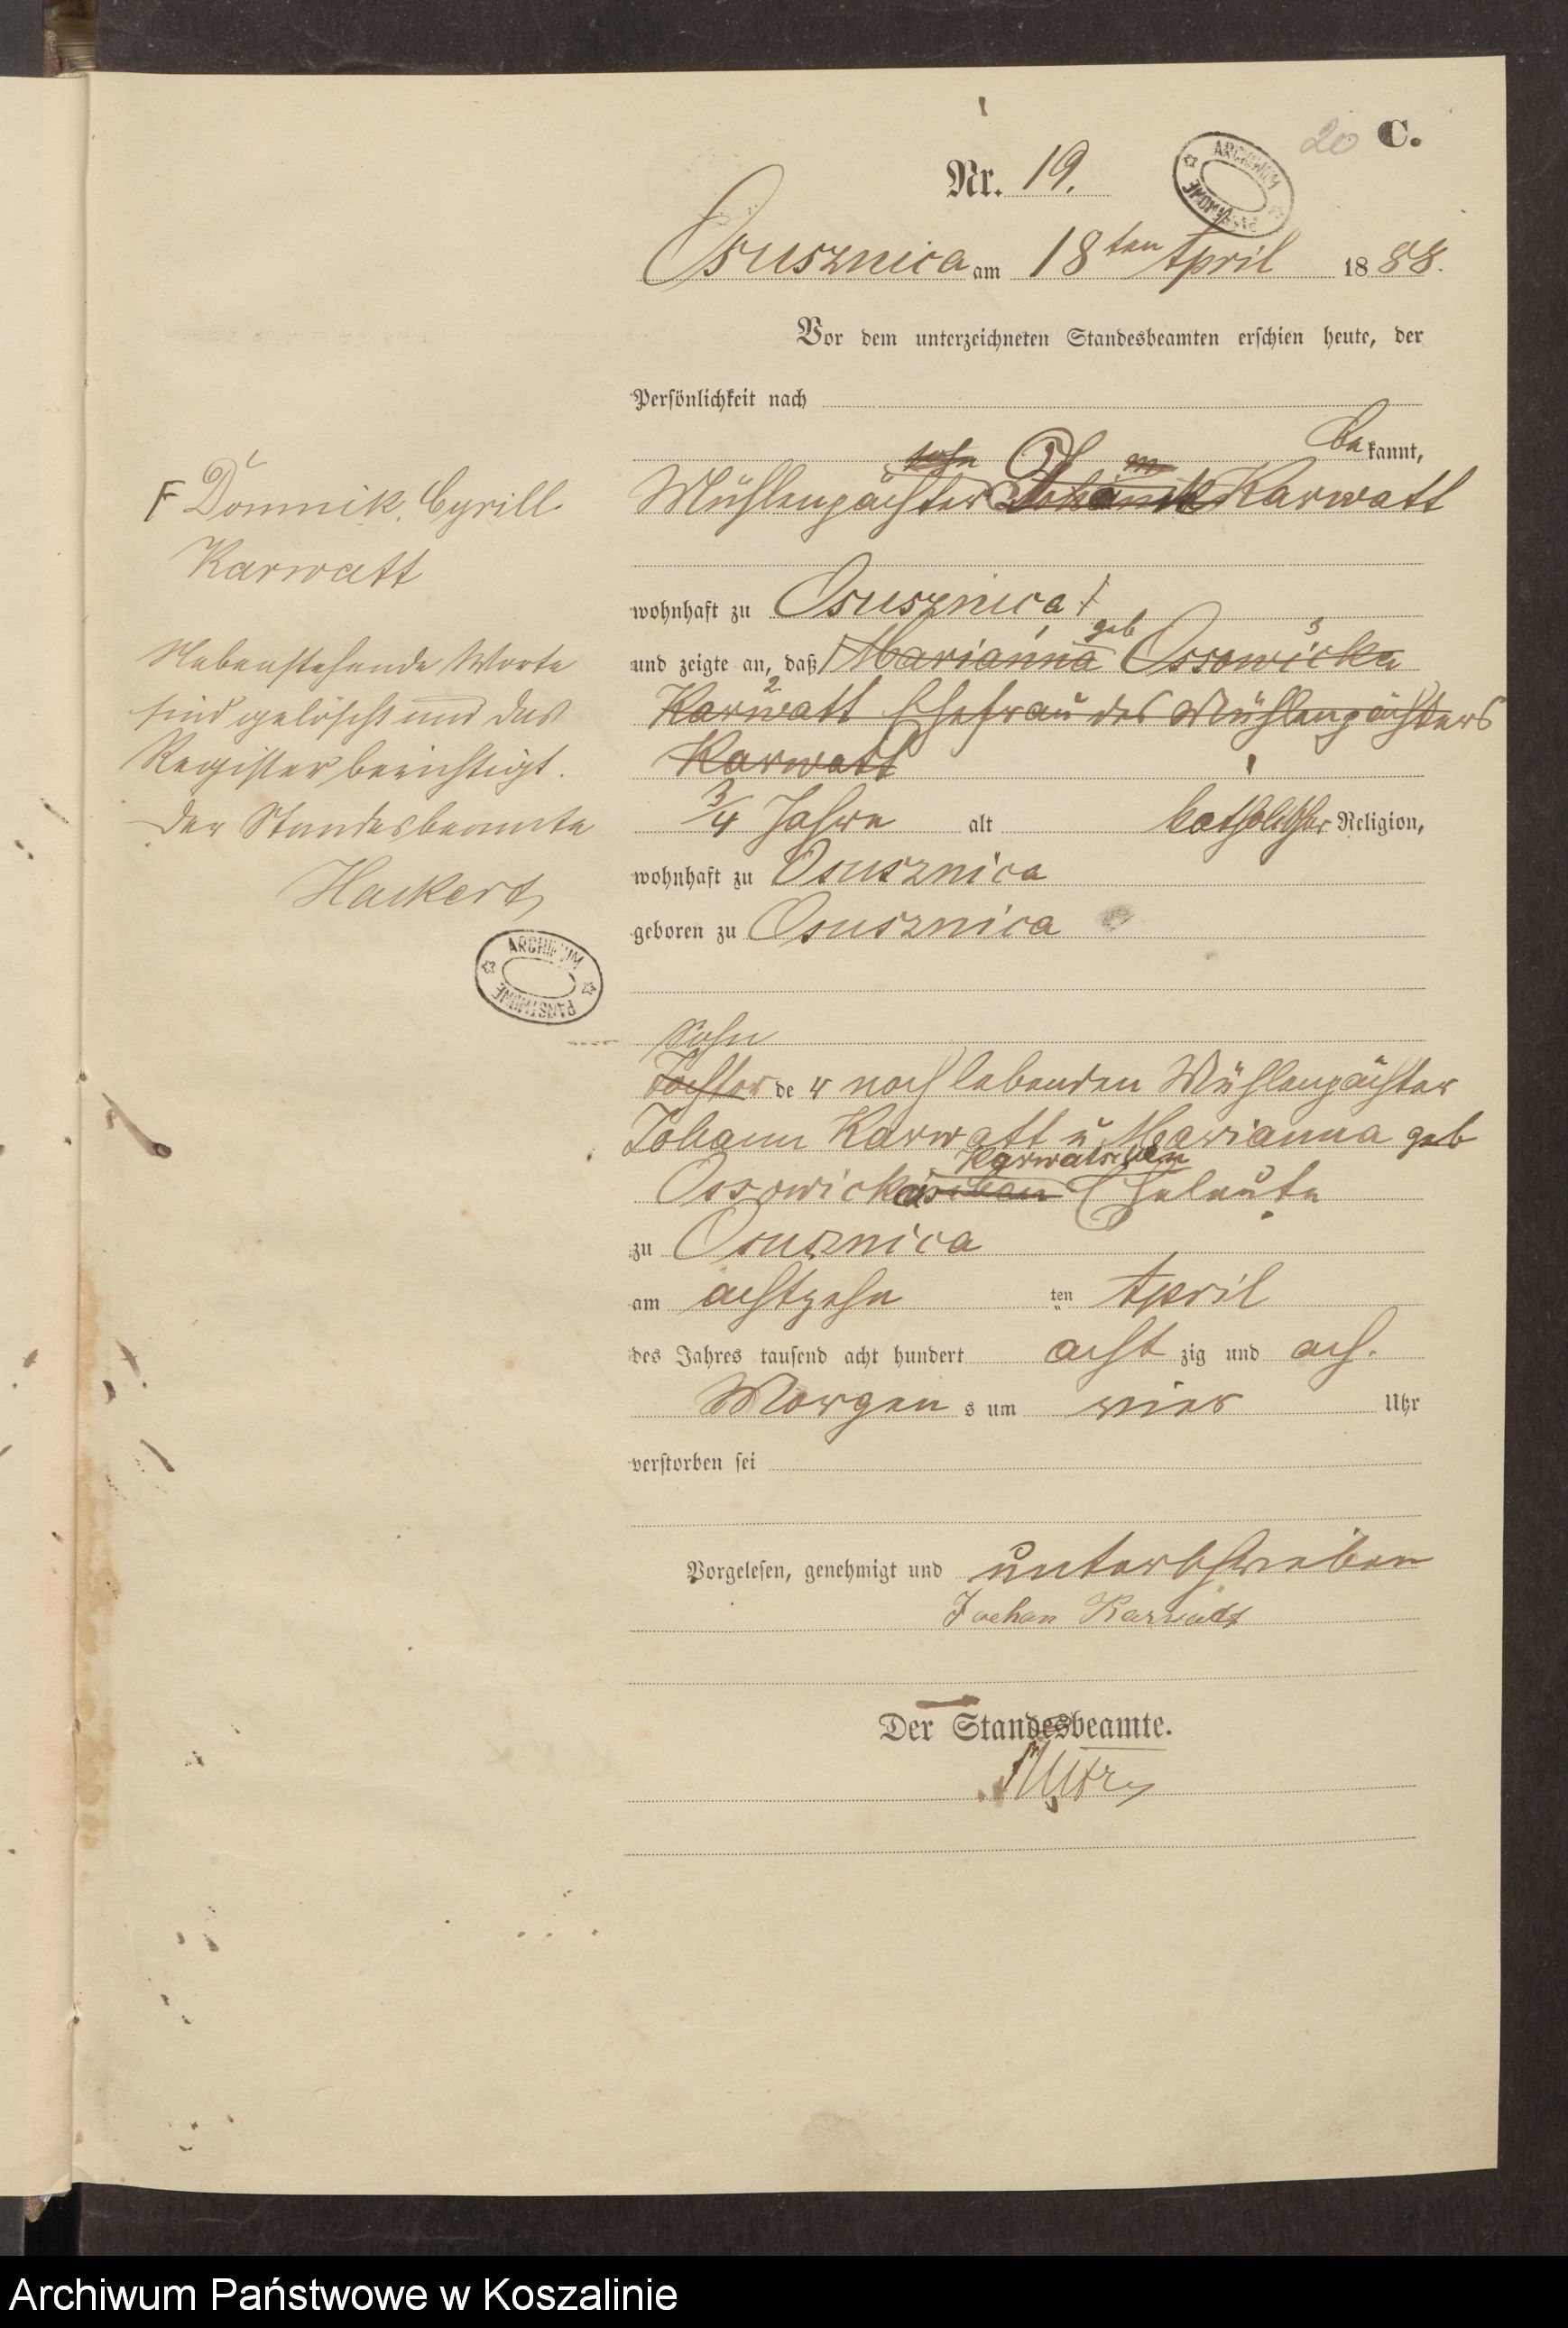 20 C.
Nr. 19.
ARCHIWUM PAŃSTWOWE
Osusznica am 18ten April 1888.
Vor dem unterzeichneten Standesbeamten erschien heute, der
Persönlichkeit nach
bekannt,
Mühlenpächter Karwatt
wohnhaft zu Osusznica
und zeigte an, daß Marianna geb Ossowicka
Karwatt Ehefrau des Mühlenpächters
Karwatt
3/4 Jahre alt katholischer Religion,
wohnhaft zu Osusznica
geboren zu Osusznica
Sohn
Tochter der noch lebenden Mühlenpächter
Johann Karwatt u Marianna geb
Karwatschen
Ossowicka Eheleute
zu Osusznica
am achtzehn ten April
des Jahres tausend acht hundert acht zig und ach.
Morgen s um vier Uhr
verstorben sei
Vorgelesen, genehmigt und unterschrieben
Joehan Karwatt
Der Standesbeamte.
F Domnik Cyrill
Karwatt
Nebenstehende Worte
sind gelöscht und das
Register berichtigt.
Der Standesbeamte
Hackert
ARCHIWUM PAŃSTWOWE
Archiwum Państwowe w Koszalinie